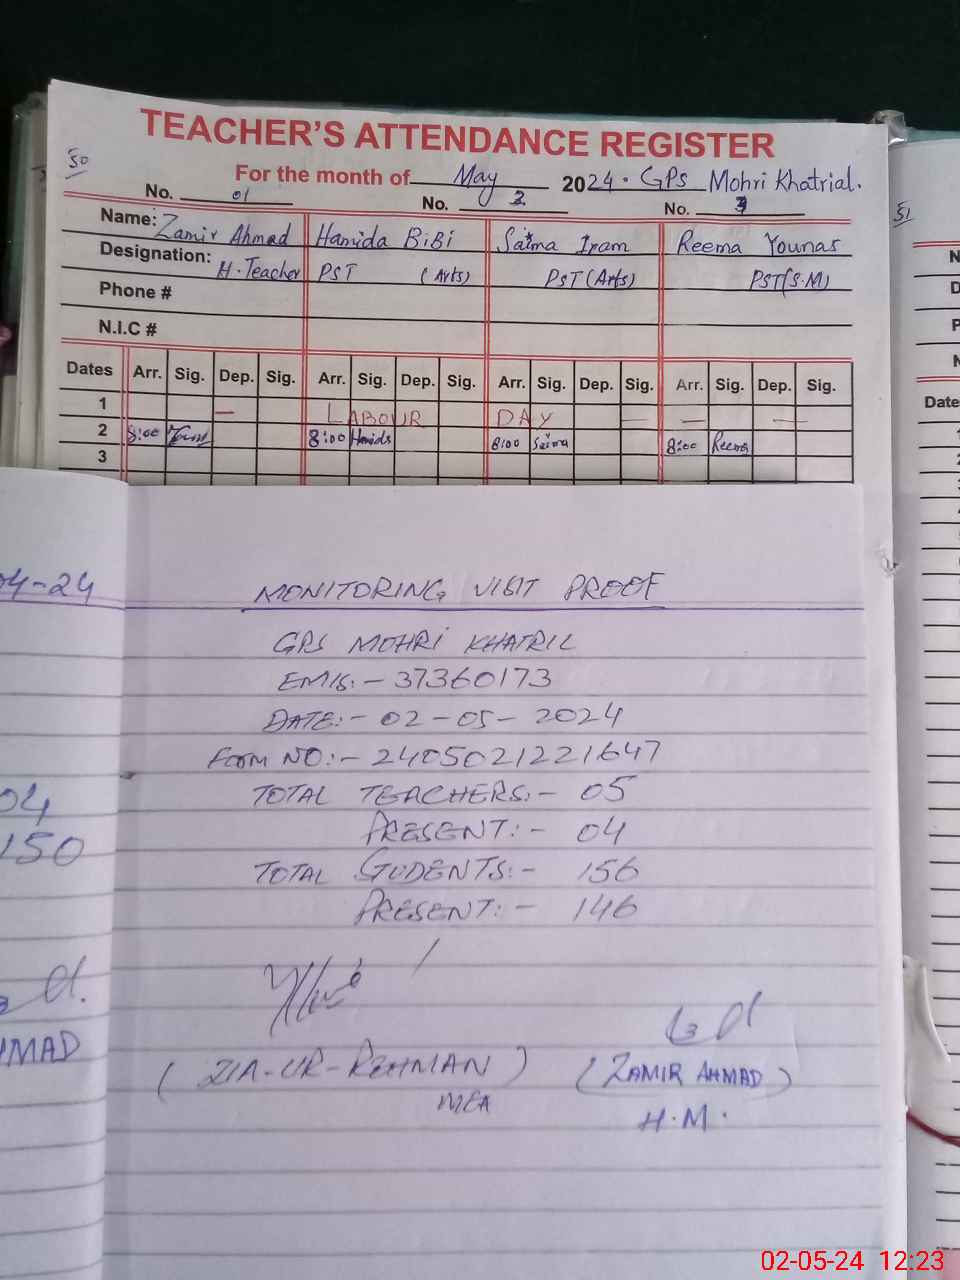 TEACHER'S ATTENDANCE REGISTER
50
For the month of May 2024. GPS Mohri Khatrial.
No. 01 No. 2 No. 3
51
Name: Zamir Ahmad Hamida BiBi Saima Iram Reema Younas
Designation: H. Teacher PST (Arts) PST (Arts) PST (S.M)
Phone #
N.I.C #
Dates Arr. Sig. Dep. Sig. Arr. Sig. Dep. Sig. Arr. Sig. Dep. Sig. Arr. Sig. Dep. Sig.
Date
1 — LABOUR DAY — — —
2 8:00 8:00 Hamida 8:00 Saima 8:00 Reema
3
04-24
MONITORING VISIT PROOF
GPS MOHRI KHATRIL
EMIS:- 37360173
DATE:- 02-05-2024
FORM NO:- 2405021221647
04
TOTAL TEACHERS:- 05
PRESENT:- 04
150
TOTAL STUDENTS:- 156
PRESENT:- 146
HMAD
(ZIA-UR-REHMAN) (ZAMIR AHMAD)
MEA H.M.
02-05-24 12:23